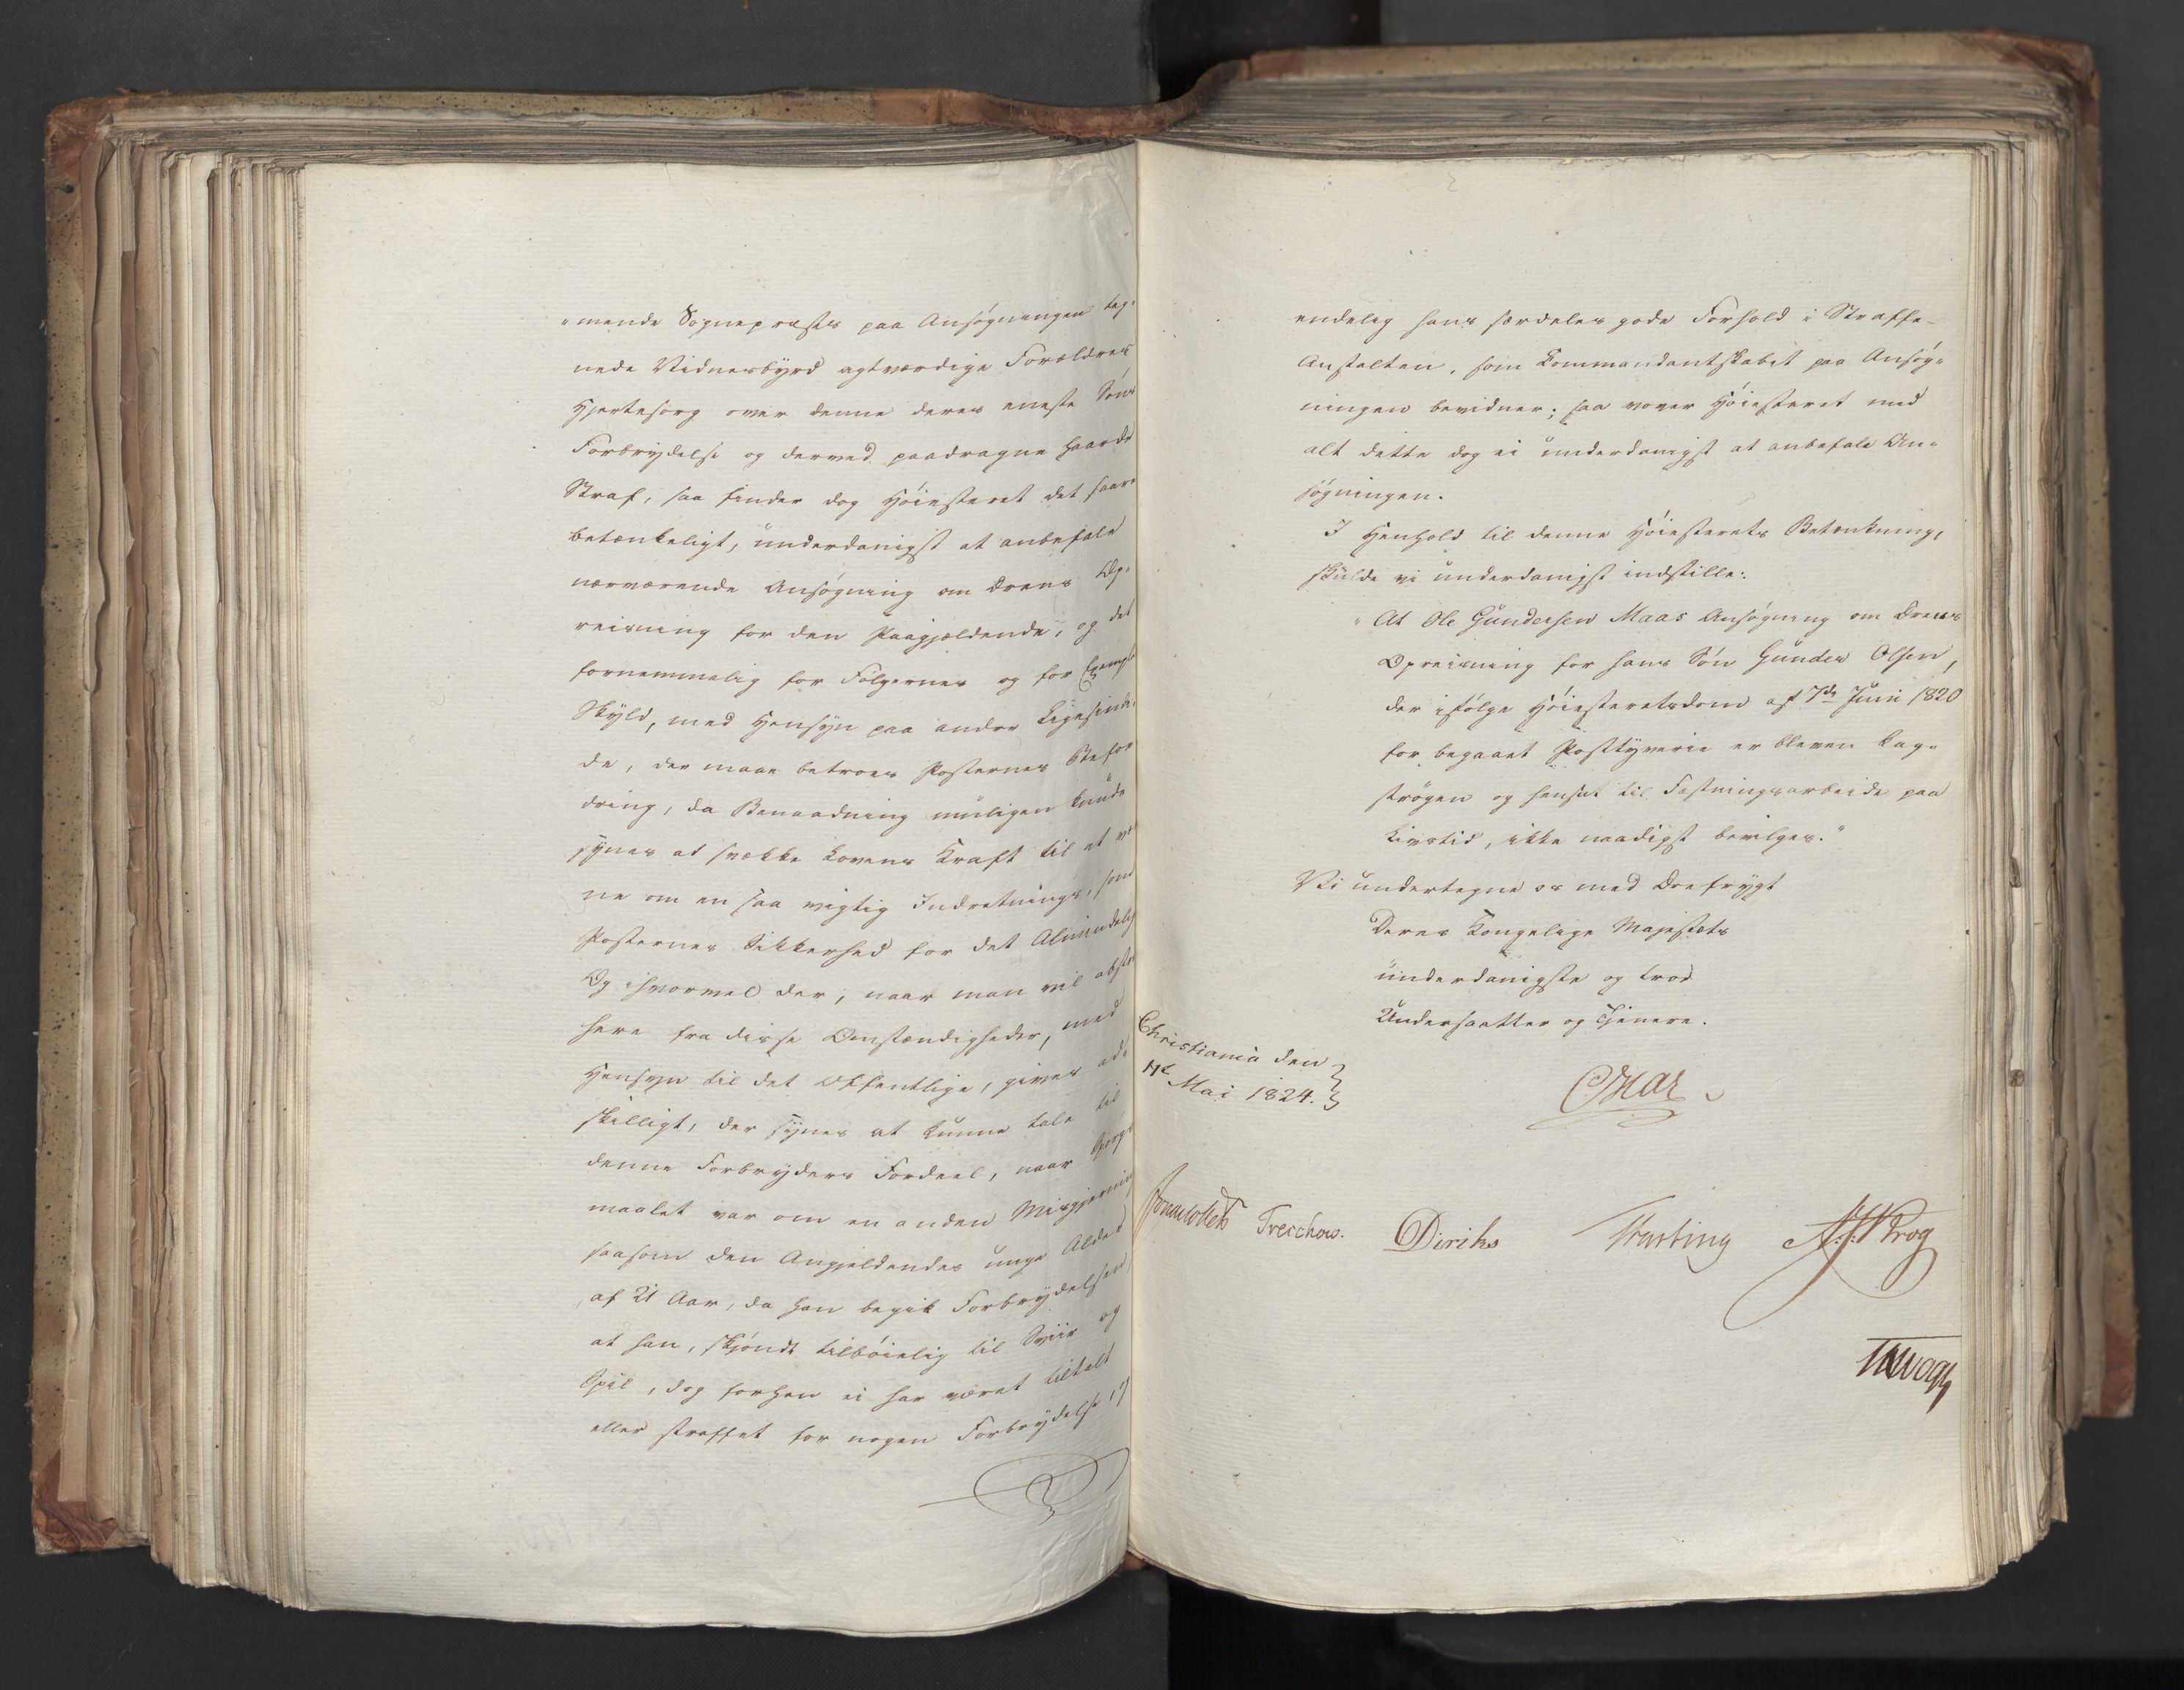 „mende Sognepræsts paa Ansøgningen teg-
nede Vidnesbyrd agtværdige Forældres
Hjertesorg over denne deres eneste Søns
Forbrydelse og derved paadragne haarde
Straf, saa finder dog Høiesteret det saare
betænkeligt, underdanigst at anbefale
nærværende Ansøgning om Ærens Op-
reisning for den Paagjældende, og det
fornemmelig for Følgernes og for Exempl
Skyld, med Hensyn paa andre Ligesinde-
de, der maae betroes Posternes Befor
dring, da Benaadning muligen kunde
synes at svække Lovens Kraft til at vær
ne om en saa vigtig Indretnings, som
Posternes Sikkerhed for det Almindelig
Og ihvorvel der, naar man vil abstra
here fra disse Omstændigheder, med
Hensyn til det Offentlige, gives ad-
skilligt, der synes at kunne tale til
denne Forbryders Fordeel, naar Spørgs
maalet var om en anden Misgjerning
saasom den Angjeldendes unge Alder
af 21 Aar, da han begik Forbrydelsen
at han, skjøndt tilbøielig til Sviir og
Spil, dog forhen ei har været tiltalt
eller straffet for nogen Forbrydelse, og
endelig hans særdeles gode Forhold i Straffe-
Anstalten, som Kommandantskabet paa Ansøg-
ningen bevidner; saa vover Høiesteret med
alt dette dog ei underdanigst at anbefale An-
søgningen.
I Henhold til denne Høiesterets Betænkning,
skulde vi underdanigst indstille:
„At Ole Gundersen Maas Ansøgning om Æres
Opreisning for hans Søn Gunder Olsen,
der ifølge Høiesteretsdom af 7de Juni 1820
for begaaet Posttyverie er bleven kag-
strøgen og hensat til Fæstningsarbeide paa
Livstid, ikke naadigst bevilges."
Vi undertegne os med Ærefrygt
Deres Kongelige Majestæts
underdanigste og troe
Undersaatter og Tjenere.
Christiania den
Mai 1824.
Sommerfeldt Treschow. Diriks Krog